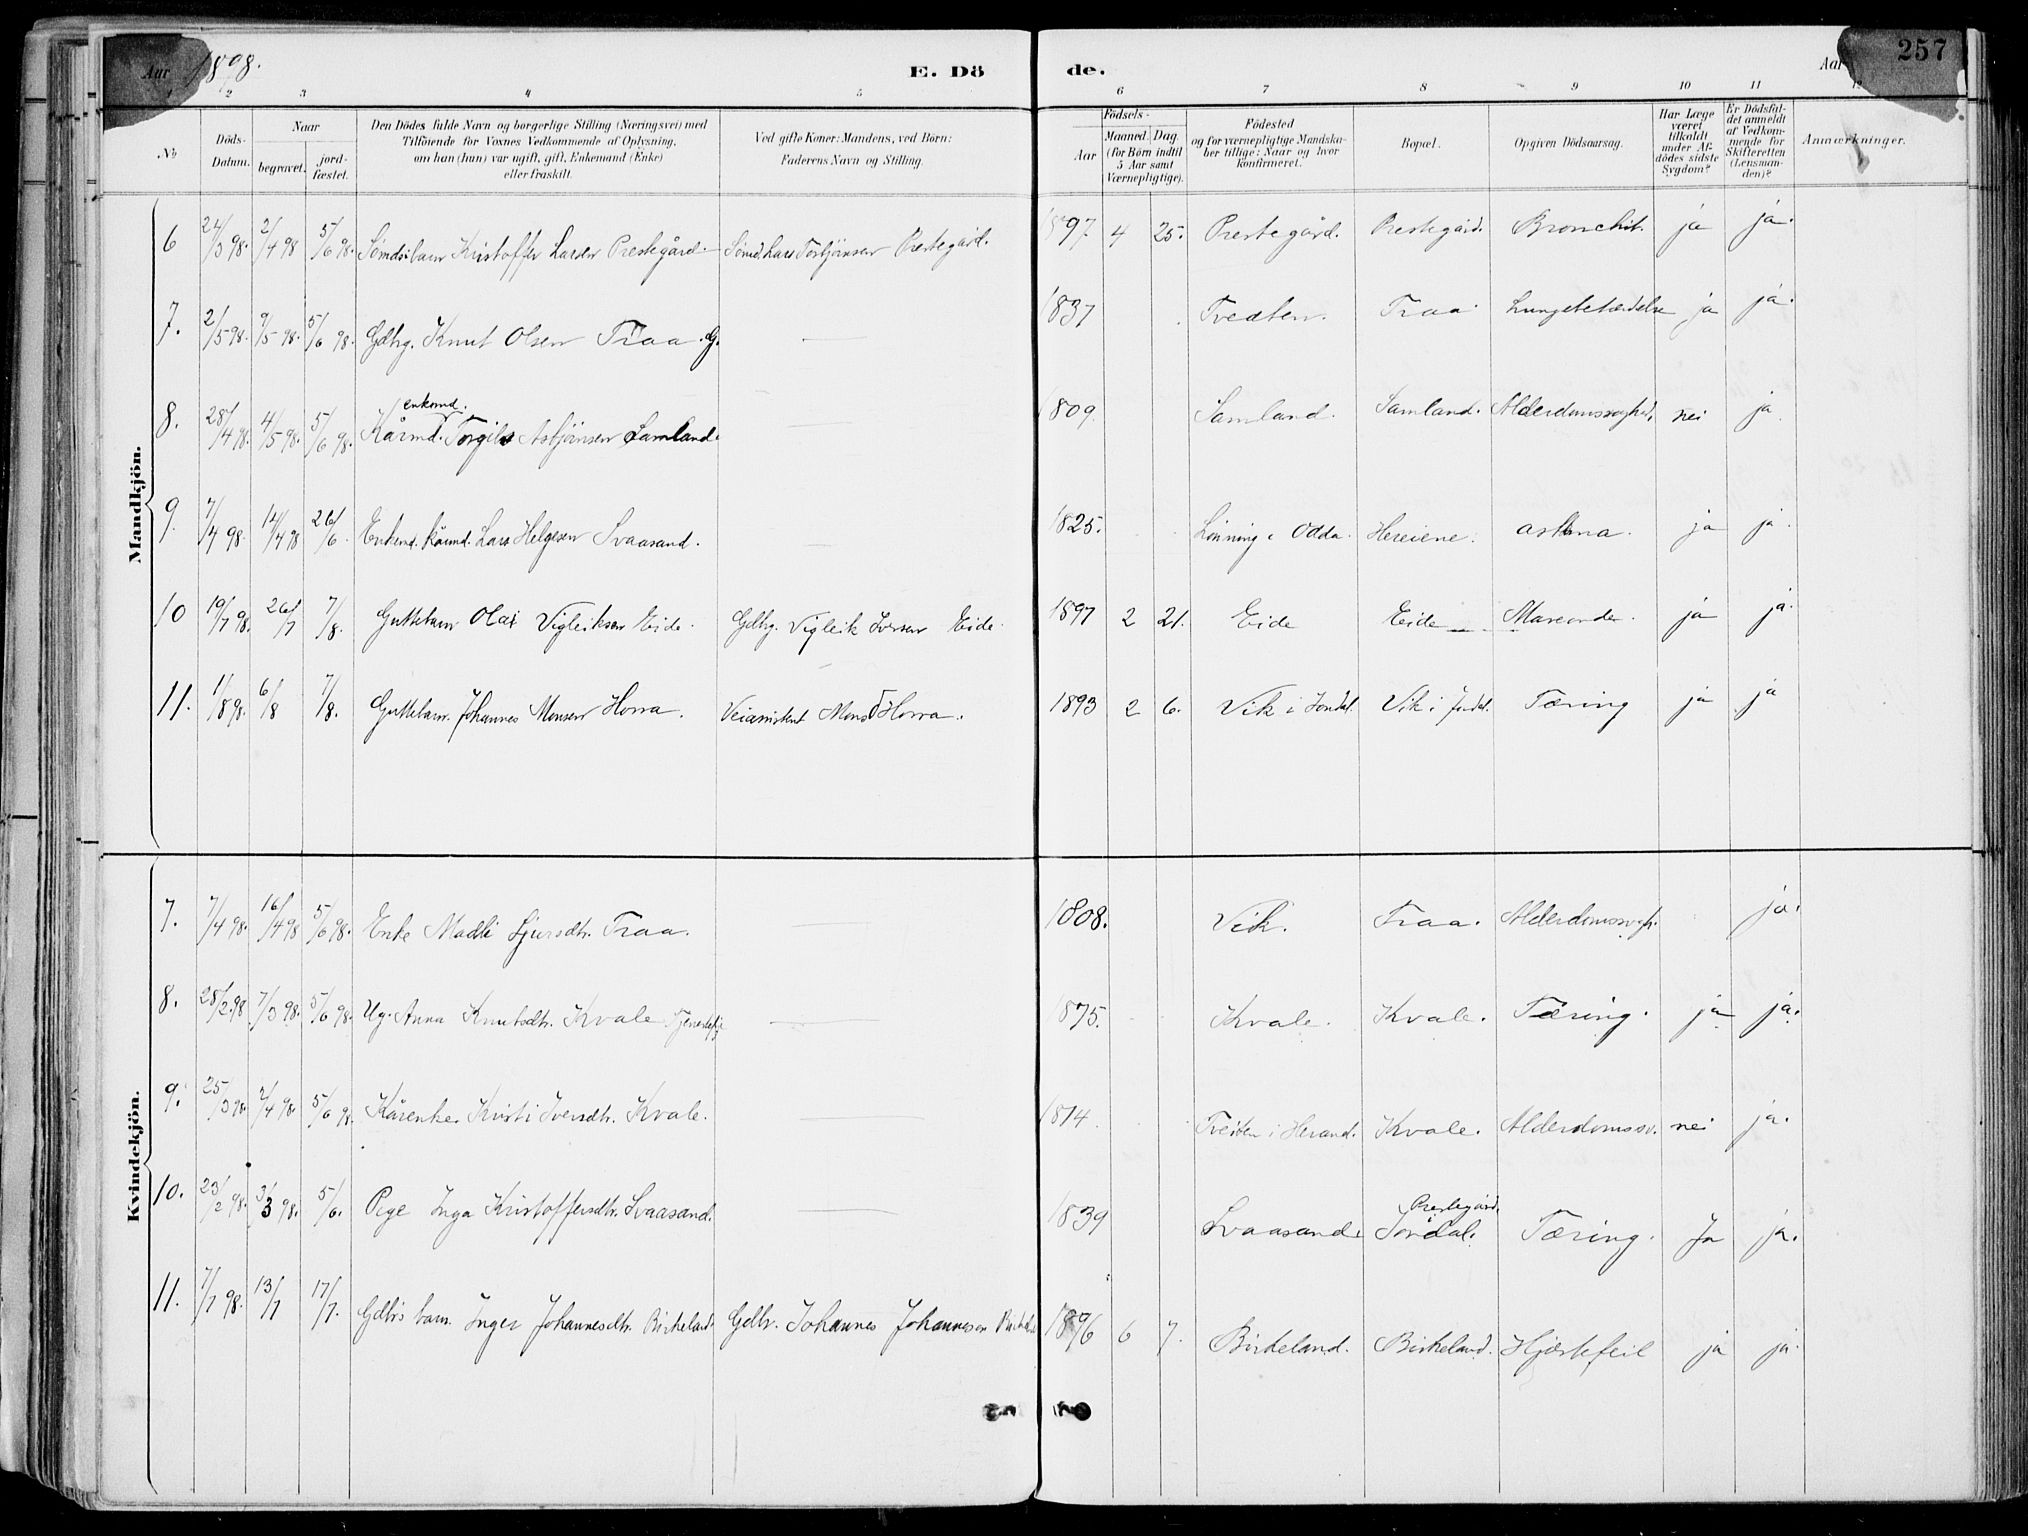 Aar 1898. E. Döde. Aar 257
1 2 3 4 5 6 7 8 9 10 11 12
No Döds-Datum. Naar begravet. jordfæstet. Den Dödes fulde Navn og borgerlige Stilling (Næringsvei) med Tilföiende for Voxnes Vedkommende af Oplysning, om han (hun) var ugift, gift, Enkemand (Enke) eller fraskilt. Ved gifte Koner: Mandens, ved Börn: Faderens Navn og Stilling. Födsels- Aar Maaned. Dag. (for Börn indtil 5 Aar samt Værnepligtige). Födested og for værnepligtige Mandskaber tillige: Naar og hvor konfirmeret. Bopæl. Opgiven Dödsaarsag. Har Læge været tilkaldt under Afdödes sidste Sygdom? Er Dödsfaldet anmeldt af Vedkommende for Skifteretten (Lensmanden)? Anmærkninger.
Mandkjön.
6 24/3 98. 2/4 98 5/6 98. Kristoffer Larsen Prestegård Lars Torbjønsen Prestegård. 1897 4 25. Prestegård. Prestegård. Bronchit. ja ja.
7. 2/5 98. 9/5 98. 5/6 98. Gbrg. Knut Olsen Traa. G. — 1837 Tveiten. Traa Lungebetændelse ja ja.
8. 28/4 98. 4/5 98. 5/6 98. enkemd. Kårmd. Torgils Asbjönsen Samland. — 1809. Samland. Samland. Alderdomssvaghed. nei ja.
9. 7/4 98. 14/4 98 26/6. Enkemd. kårmd. Lars Helgesen Svaasand. — 1825. Lönning i Odda. Hereiene. asthma. ja ja
10 19/7 98. 26/7 7/8. Guttebarn Olai Vigleiksen Eide. Gbrg. Vigleik Iversen Eide. 1897 2 21. Eide Eide ja ja.
11. 1/8 98. 6/8 7/8. Guttebarn. Johannes Monsen Horra. Veiassistent Mons Horra. 1893 2 6. Vik i Jondal Vik i Jondal. Tæring ja ja
Kvindekjön.
7. 7/4 98. 16/4 98 5/6 98. Enke Madli Sjursdtr. Traa. — 1808. Vik. Traa. Alderdomssvagh. ja.
8. 28/2 98 7/3 98. 5/6 98. Ug. Anna Knutsdtr. Kvale — 1875. Kvale. Kvale. Tæring. ja ja.
9. 25/3 98. 2/4 98. 5/6 98. Kårenke. Kristi Iversdtr. Kvale. — 1814. Tveiten i Herand. Kvale. Alderdomssv. nei ja.
10. 23/2 98. 3/3 98. 5/6. Pige Inga Kristoffersdtr. Svaasand. — 1839 Svaasand. Prestegård. Jondal. Tæring. Ja ja.
11. 7/7 98. 13/7 17/7. Gbrs barn. Inger Johannesdtr. Birkeland. Gbr. Johannes Johannesen Birkeland 1896 6 7. Birkeland. Birkeland. Hjærtefeil ja ja.